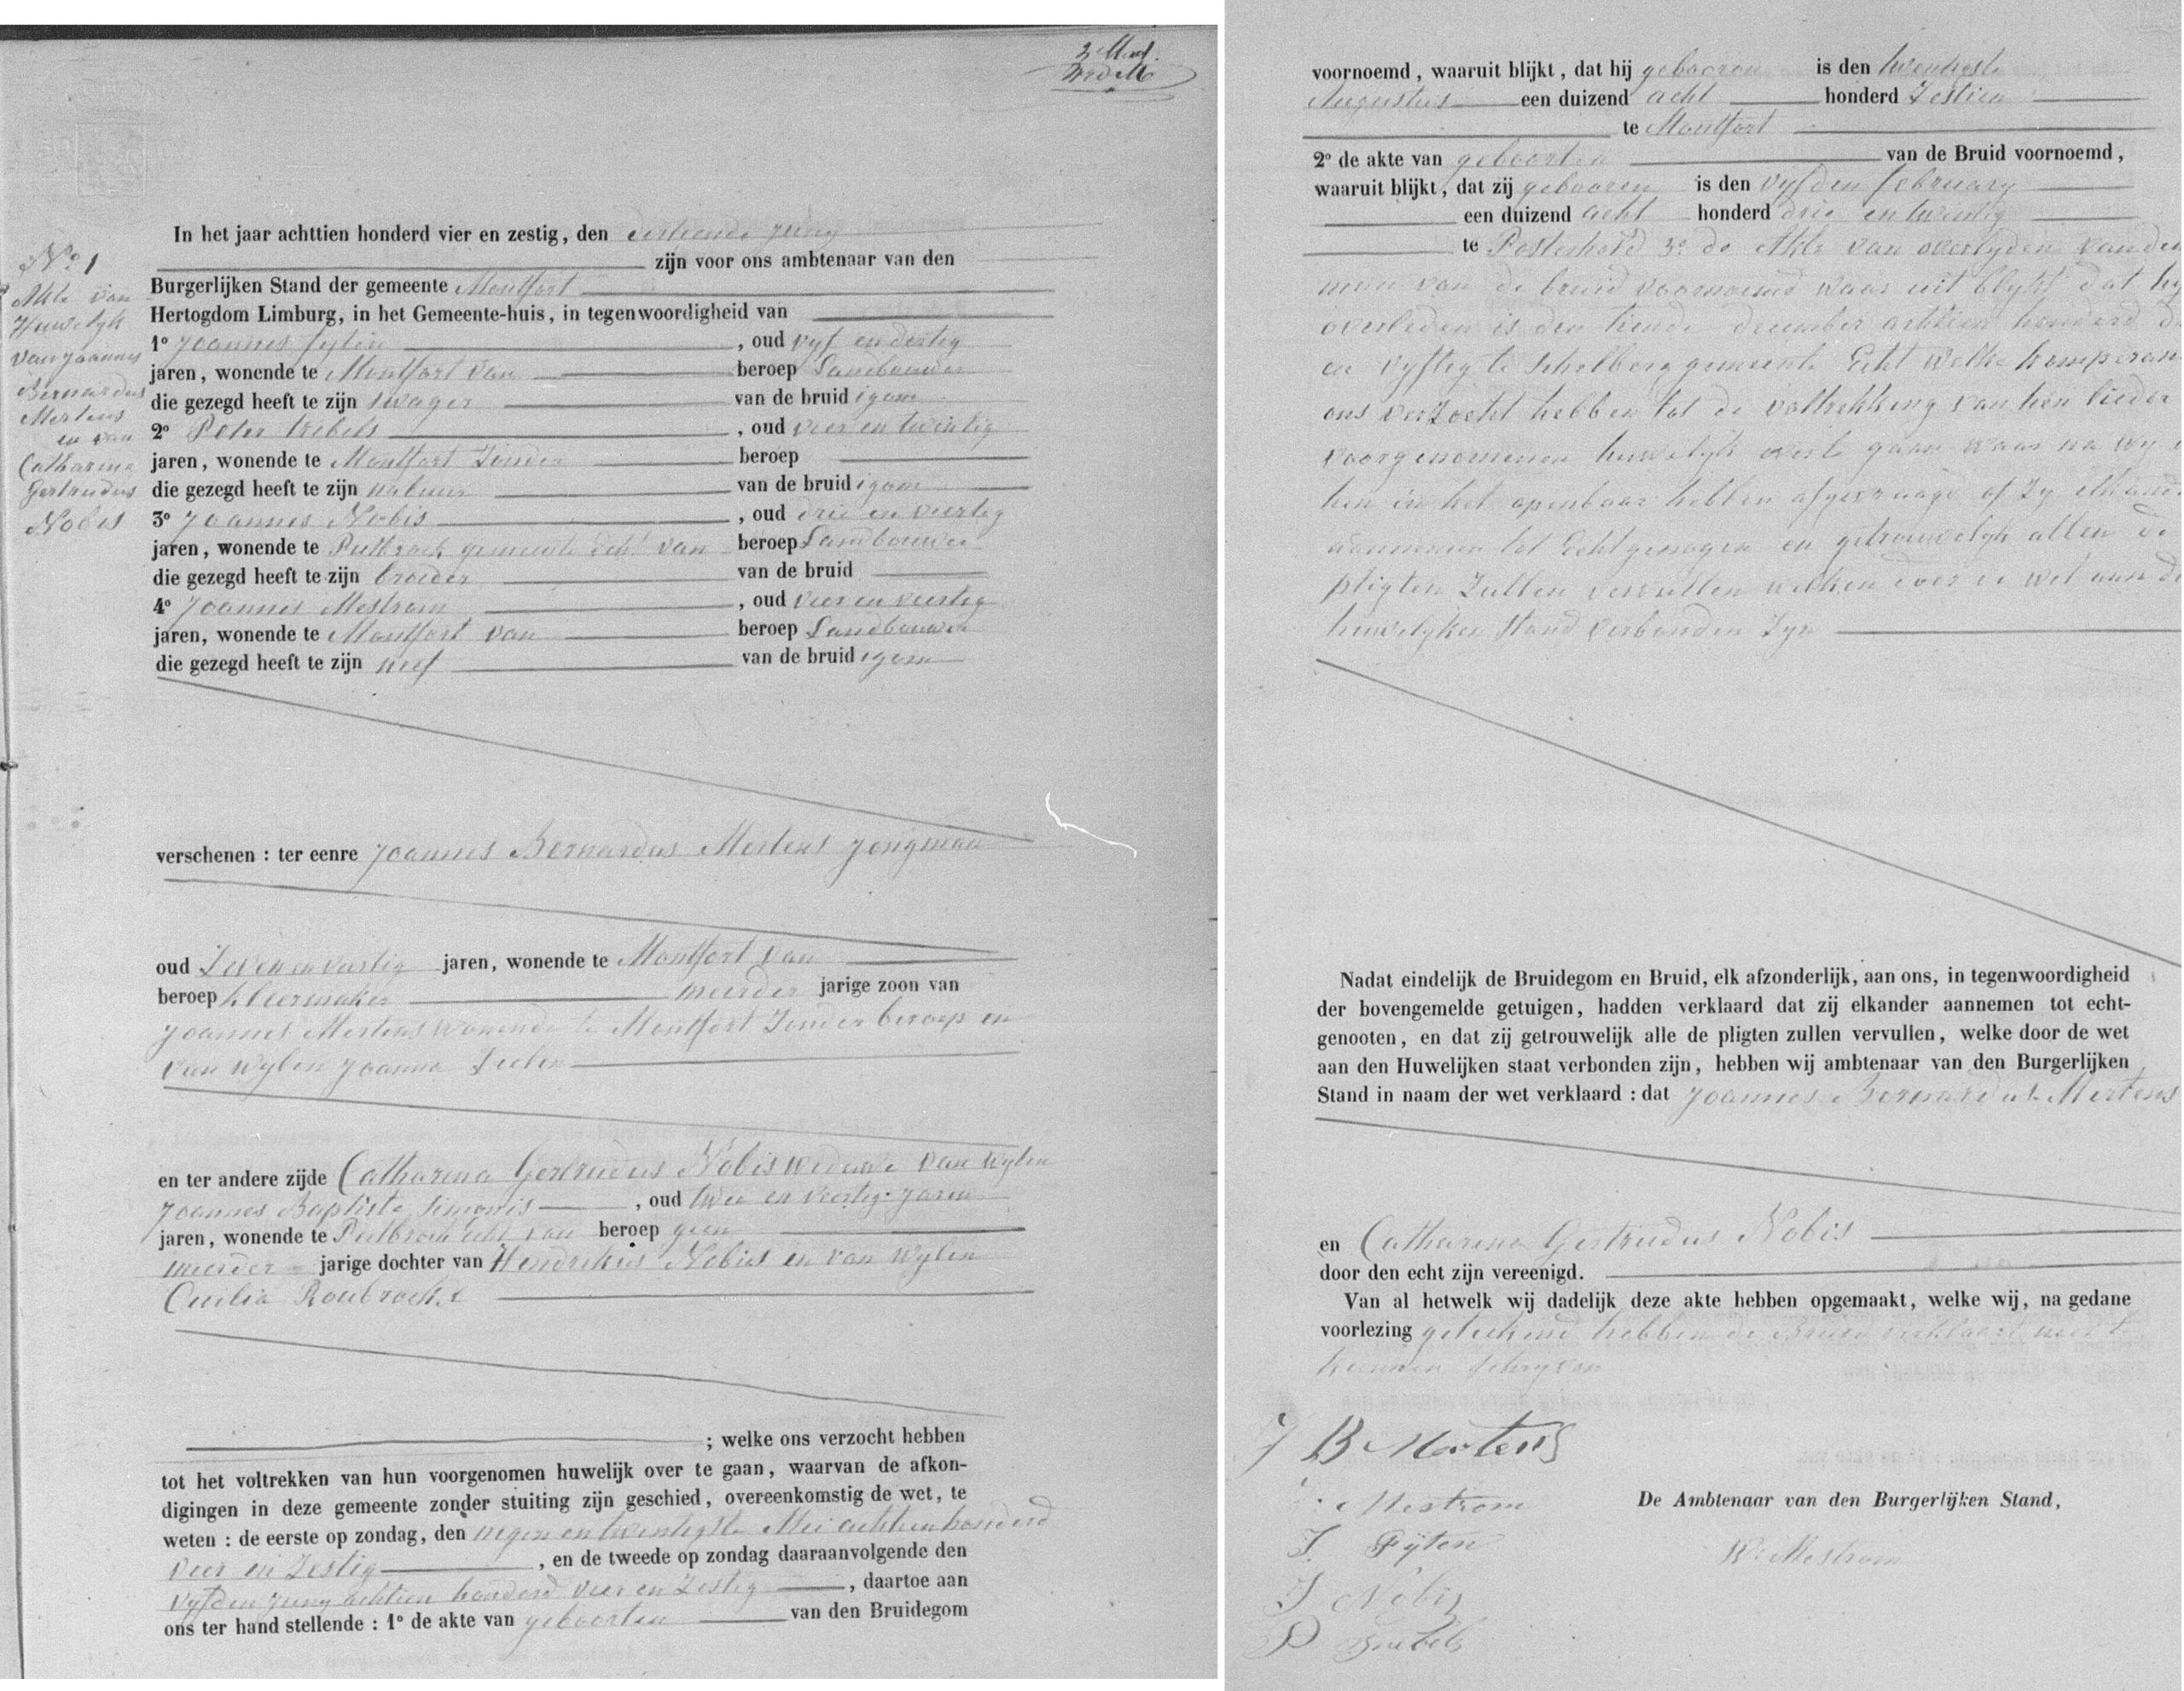 In het jaar achttien honderd vier en zestig, den dertiende Juny
zijn voor ons ambtenaar van den
Burgerlijken Stand der gemeente Montfort
Hertogdom Limburg, in het Gemeente-huis, in tegenwoordigheid van
1º Joannes fyten, oud vyf en dertig
jaren, wonende te Montfort van beroep Landbouwer
die gezegd heeft te zijn swager van de bruidigom
2º Peter trebels, oud vier en twintig
jaren, wonende te Montfort Zonder beroep
die gezegd heeft te zijn nabuur van de bruidigom
3º Joannes Nobis, oud drie en veertig
jaren, wonende te Putbroek gemeente Echt van beroep Landbouwer
die gezegd heeft te zijn broeder van de bruid
4º Joannes Mestrom, oud vier en veertig
jaren, wonende te Montfort van beroep Landbouwer
die gezegd heeft te zijn neef van de bruidigom
Nº 1
Akte van
Huwelyk
van Joannes
Bernardus
Mertens
en van
Catharina
Gertrudus
Nobis
verschenen : ter eenre Joannes Bernardus Mertens Jongman
oud Zeven en veertig jaren, wonende te Montfort van
beroep kleermaker meerder jarige zoon van
Joannes Mertens wonende te Montfort Zonder beroep en
van wylen Joanna
en ter andere zijde Catharina Gertrudus Nobis weduwe van wylen
Joannes Baptista Simonis, oud twee en veertig Jaren
jaren, wonende te Putbroek Echt van beroep geen
meerder jarige dochter van Hendrikus Nobis en van wylen
Cecilia Roubroeks
; welke ons verzocht hebben
tot het voltrekken van hun voorgenomen huwelijk over te gaan, waarvan de afkon-
digingen in deze gemeente zonder stuiting zijn geschied, overeenkomstig de wet, te
weten : de eerste op zondag, den negen en twentigste Mei achttien honderd
vier en Zestig, en de tweede op zondag daaraanvolgende den
vyfden Juny achtien honderd vier en Zestig, daartoe aan
ons ter hand stellende : 1º de akte van geboorten van den Bruidegom
voornoemd, waaruit blijkt, dat hij gebooren is den twentigste
Augustus een duizend acht honderd Zestien
te Montfort
2º de akte van geboorten van de Bruid voornoemd,
waaruit blijkt, dat zij gebooren is den vyfden february
een duizend acht honderd drie en twintig
te Posterholt 3º de Akte van overlyden van den
man van de bruid voornoemd waar uit blykt dat hy
overleden is den tiende december achtien honderd
en vyftig te Schilberg gemeente Echt welke
ons verzocht hebben tot de voltrekking van hen lieder
voorgenomenen huwelyk over te gaan waar na wy
hen in het openbaar hebben afgevraagd of Zy
aannemen tot Echtgenogen en getrouwelyk allen de
pligten Zullen vervullen welken door de wet aan de
huwelyken stand verbonden Zyn
Nadat eindelijk de Bruidegom en Bruid, elk afzonderlijk, aan ons, in tegenwoordigheid
der bovengemelde getuigen, hadden verklaard dat zij elkander aannemen tot echt-
genooten, en dat zij getrouwelijk alle de pligten zullen vervullen, welke door de wet
aan den Huwelijken staat verbonden zijn, hebben wij ambtenaar van den Burgerlijken
Stand in naam der wet verklaard : dat Joannes Bernardus Mertens
en Catharina Gertrudus Nobis
door den echt zijn vereenigd.
Van al hetwelk wij dadelijk deze akte hebben opgemaakt, welke wij, na gedane
voorlezing geteekend hebben de Bruid verklaart niet te
kunnen schryven
J B Mertens
Mestrom
J Fijten
J Nobis
P Trebels
De Ambtenaar van den Burgerlijken Stand,
W. Mestrom